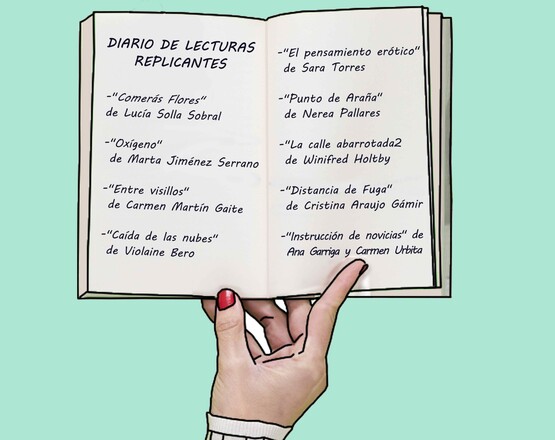 DIARIO DE LECTURAS
REPLICANTES
-"Comerás Flores"
de Lucía Solla Sobral
-"Oxígeno"
de Marta Jiménez Serrano
-"Entre visillos"
de Carmen Martín Gaite
-"Caída de las nubes"
de Violaine Bero
-"El pensamiento erótico"
de Sara Torres
-"Punto de Araña"
de Nerea Pallares
-"La calle abarrotada2
de Winifred Holtby
-"Distancia de Fuga"
de Cristina Araujo Gámir
-"Instrucción de novicias" de
Ana Garriga y Carmen Urbita